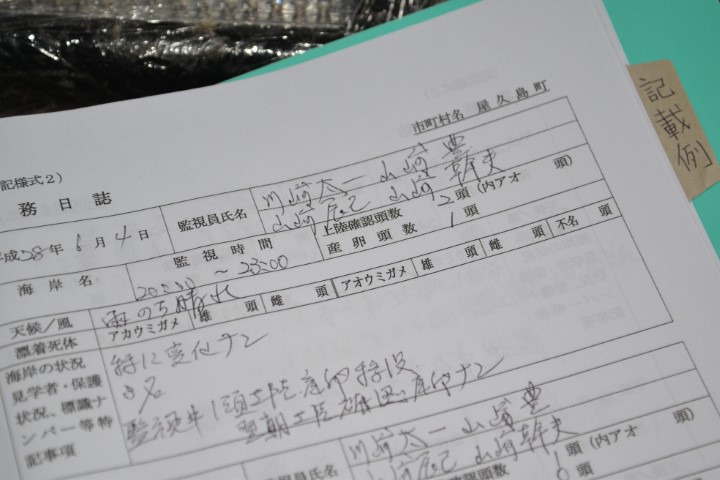 市町村名 屋久島町
記載例
記様式2)
務日誌
平成28年6月4日
監視員氏名
川崎太一 山崎豊
山崎辰己 山崎幹夫
海岸名
監視時間
20:00～23:00
上陸確認頭数 2頭(内アオ 頭
産卵頭数 1頭
天候／風
雨のち晴れ
漂着死体
アカウミガメ 雄 頭 雌 頭 アオウミガメ 雄 頭 雌 頭 不名 頭
海岸の状況
特に変化ナシ
見学者・保護
状況、標識ナ
ンバー等特
記事項
監視中1頭上陸産卵
翌朝上陸 産卵ナシ
監視員氏名
川崎太一 山崎豊
山崎辰己 山崎幹夫
確認頭数 1頭(内アオ
頭